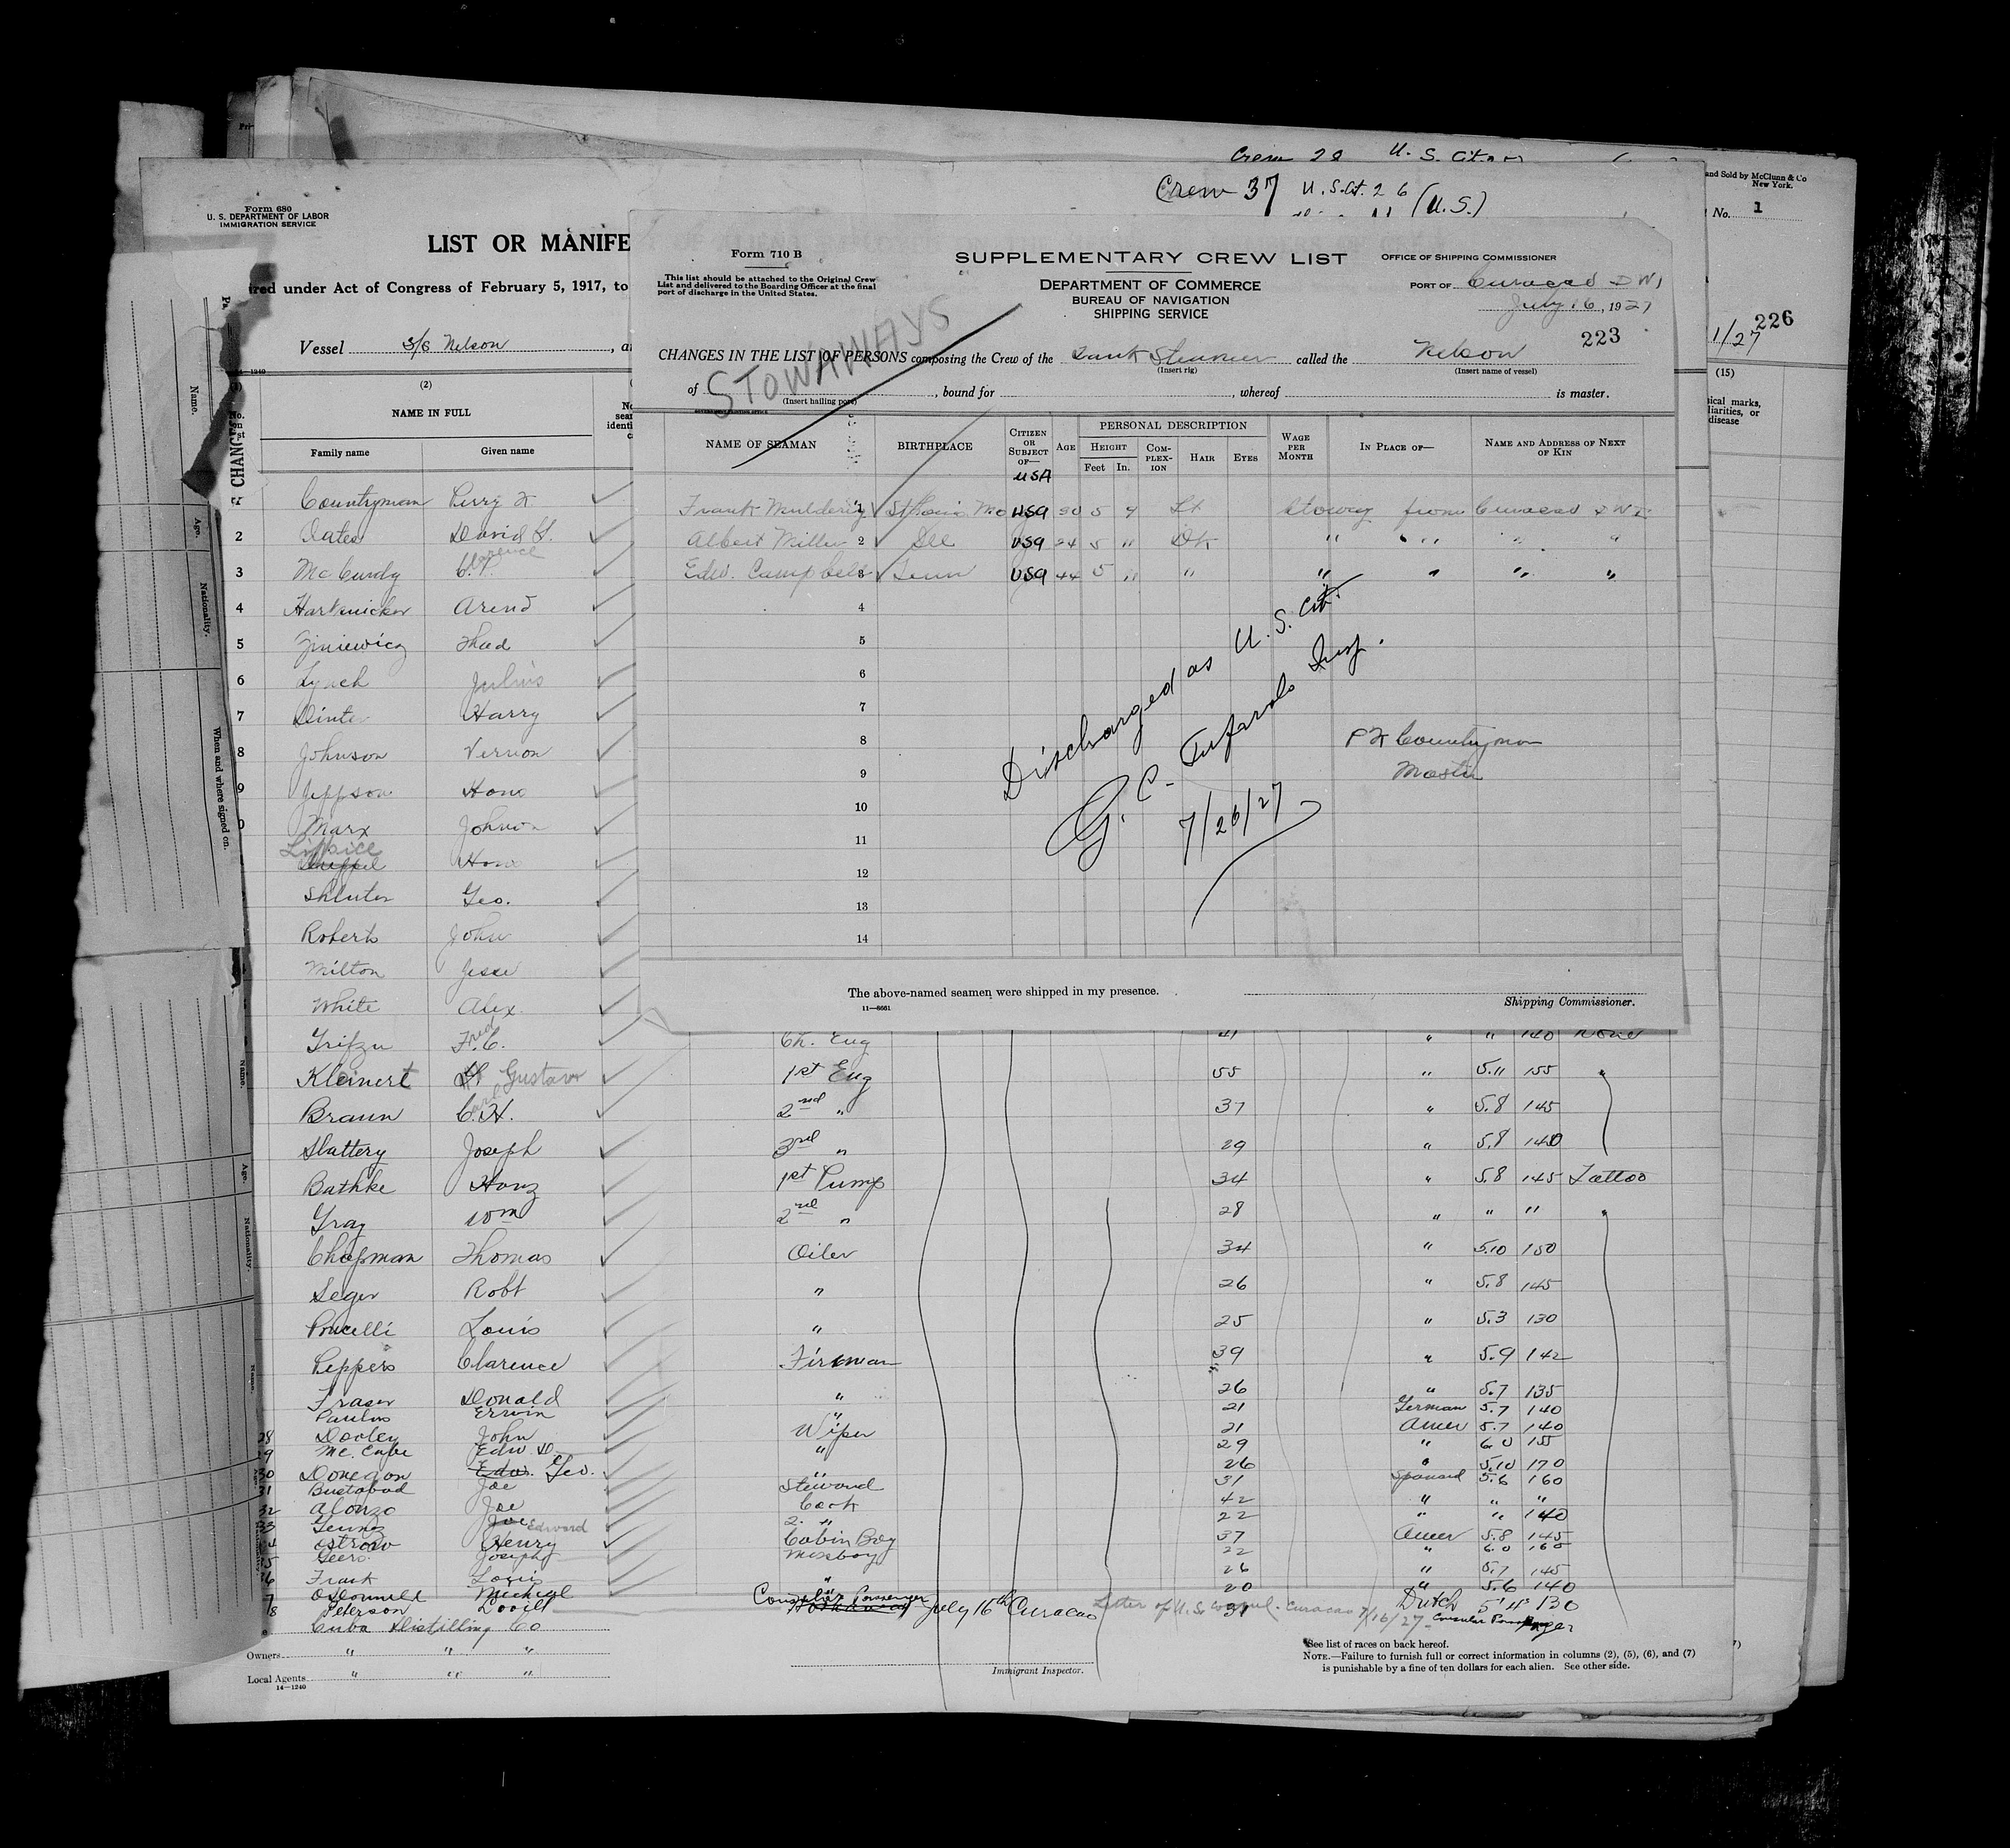 Crew 28 U. S. Cit
and Sold by McClunn & Co
New York.
No. 1
226
1/27
(15)
ical marks,
liarities, or
disease
Crew 37 U. S. Cit. 26
(U.S.)
Form 680
U. S. DEPARTMENT OF LABOR
IMMIGRATION SERVICE
LIST OR MANIFE
red under Act of Congress of February 5, 1917, to
Vessel S/S Nelson, a
(2)
NAME IN FULL
Family name Given name
Form 710 B
This list should be attached to the Original Crew
List and delivered to the Boarding Officer at the final
port of discharge in the United States.
SUPPLEMENTARY CREW LIST
DEPARTMENT OF COMMERCE
BUREAU OF NAVIGATION
SHIPPING SERVICE
OFFICE OF SHIPPING COMMISSIONER
PORT OF Curacao D W I
July 16, 1927
223
STOWAWAYS
CHANGES IN THE LIST OF PERSONS composing the Crew of the Tank Steamer called the Nelson
(Insert rig) (Insert name of vessel)
of , bound for , whereof is master.
(Insert hailing port)
NAME OF SEAMAN BIRTHPLACE CITIZEN OR SUBJECT OF— AGE PERSONAL DESCRIPTION WAGE PER MONTH IN PLACE OF— NAME AND ADDRESS OF NEXT OF KIN
HEIGHT COMPLEXION HAIR EYES
Feet In.
USA
1 St Louis Mo USA 30 5 9 Lt Stoway from Curacao D W I
Albert Miller 2 USA 24 5 " Dk " " " " "
Edw. Campbell 3 Tenn USA 44 5 " " " " " "
4
5
6
7
8
9
10
11
12
13
14
Discharged as U. S. Cit.
G. C. Insp.
7/26/27
P K Countryman
Master
The above-named seamen were shipped in my presence.
11—6661
Shipping Commissioner.
Countryman Perry K
2 Oates David
3 McCurdy Clarence P.
4 Arend
5 Thad
6 Lynch Julius
7 Harry
8 Johnson Vernon
9 Jeppson Hans
Marx Johnson
Hans
Shluter Geo.
Roberts John
Milton Jesse
White Alex
Fred C. Ch. Eng 41 " " 140 None
Kleinert Gustav 1st Eng 55 " 5.11 155 "
Braun C. H. 2nd " 37 " 5.8 145
Slattery Joseph 3rd " 29 " 5.8 140
Bathke Hanz 1st Pump 34 " 5.8 145 Tattoo
Gray Wm 2nd " 28 " " " "
Chapman Thomas Oiler 34 " 5.10 150
Seger Robt " 26 " 5.8 145
Louis " 25 " 5.3 130
Peppers Clarence Fireman 39 " 5.9 142
Fraser Donald " 26 " 5.7 135
Paulus Erwin " 21 German 5.7 140
28 Dooley John Wiper 21 Amer 5.7 140
29 Mc. Cabe Edw D. " 29 " 6.0 155
30 Donegan Edw. Geo. " 26 " 5.10 170
31 Bustabad Joe Steward 31 Spaniard 5.6 160
32 Alonzo Joe Cook 42 " " "
33 Joe Edward 2. " 22 " " 140
Ostrow Henry Cabin Boy 37 Amer 5.8 145
Geers Joseph Messboy 22 " 6.0 160
36 Frank Louis " 26 " 5.7 145
7 O'Donnell Michael " 20 " 5.6 140
8 Peterson Consular Passenger July 16th Curacao 31 Dutch 5'11" 130
Letter of U.S. Consul. Curacao 7/16/27 - Consular Passenger
Cuba Distilling Co
Owners " " "
Local Agents " " "
14—1240
Immigrant Inspector.
See list of races on back hereof.
NOTE.—Failure to furnish full or correct information in columns (2), (5), (6), and (7)
is punishable by a fine of ten dollars for each alien. See other side.
Name.
Age.
Nationality.
When and where signed on.
Name.
Age.
Nationality.
Name.